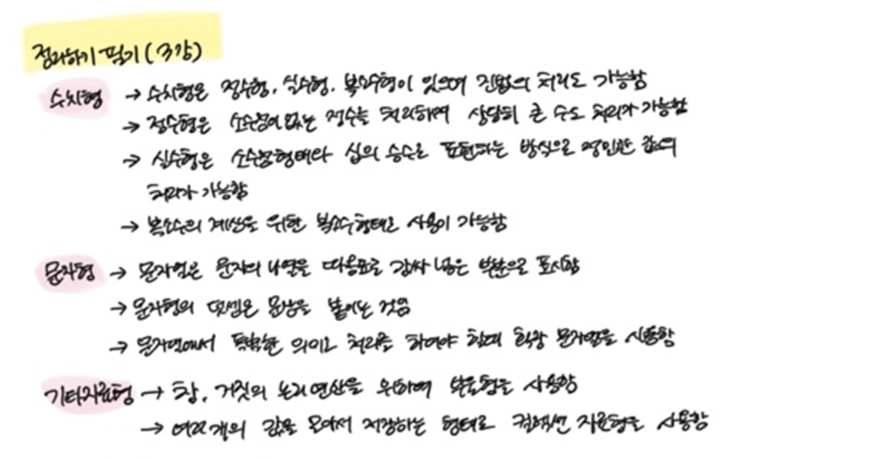 정리하기 필기 (3강)
수치형 → 수치형은 정수형, 실수형, 복소수형이 있으며 진법의 처리도 가능함
→ 정수형은 소수점이 없는 정수를 처리하며 상당히 큰 수도 처리가 가능함
→ 실수형은 소수점형태와 십의 승수로 표현하는 방식으로 정밀한 값의
처리가 가능함
→ 복소수의 계산을 위한 복소수형태로 사용이 가능함
문자형 → 문자열은 문자의 나열을 따옴표로 감싸 넣은 부분으로 표시함
→ 문자형의 덧셈은 문장을 붙이는 것임
→ 문자열에서 특별한 의미로 처리를 하여야 할때 확장 문자열을 사용함
기타자료형 → 참, 거짓의 논리연산을 위하여 부울형을 사용함
→ 여러개의 값을 모아서 저장하는 형태로 컬렉션 자료형을 사용함